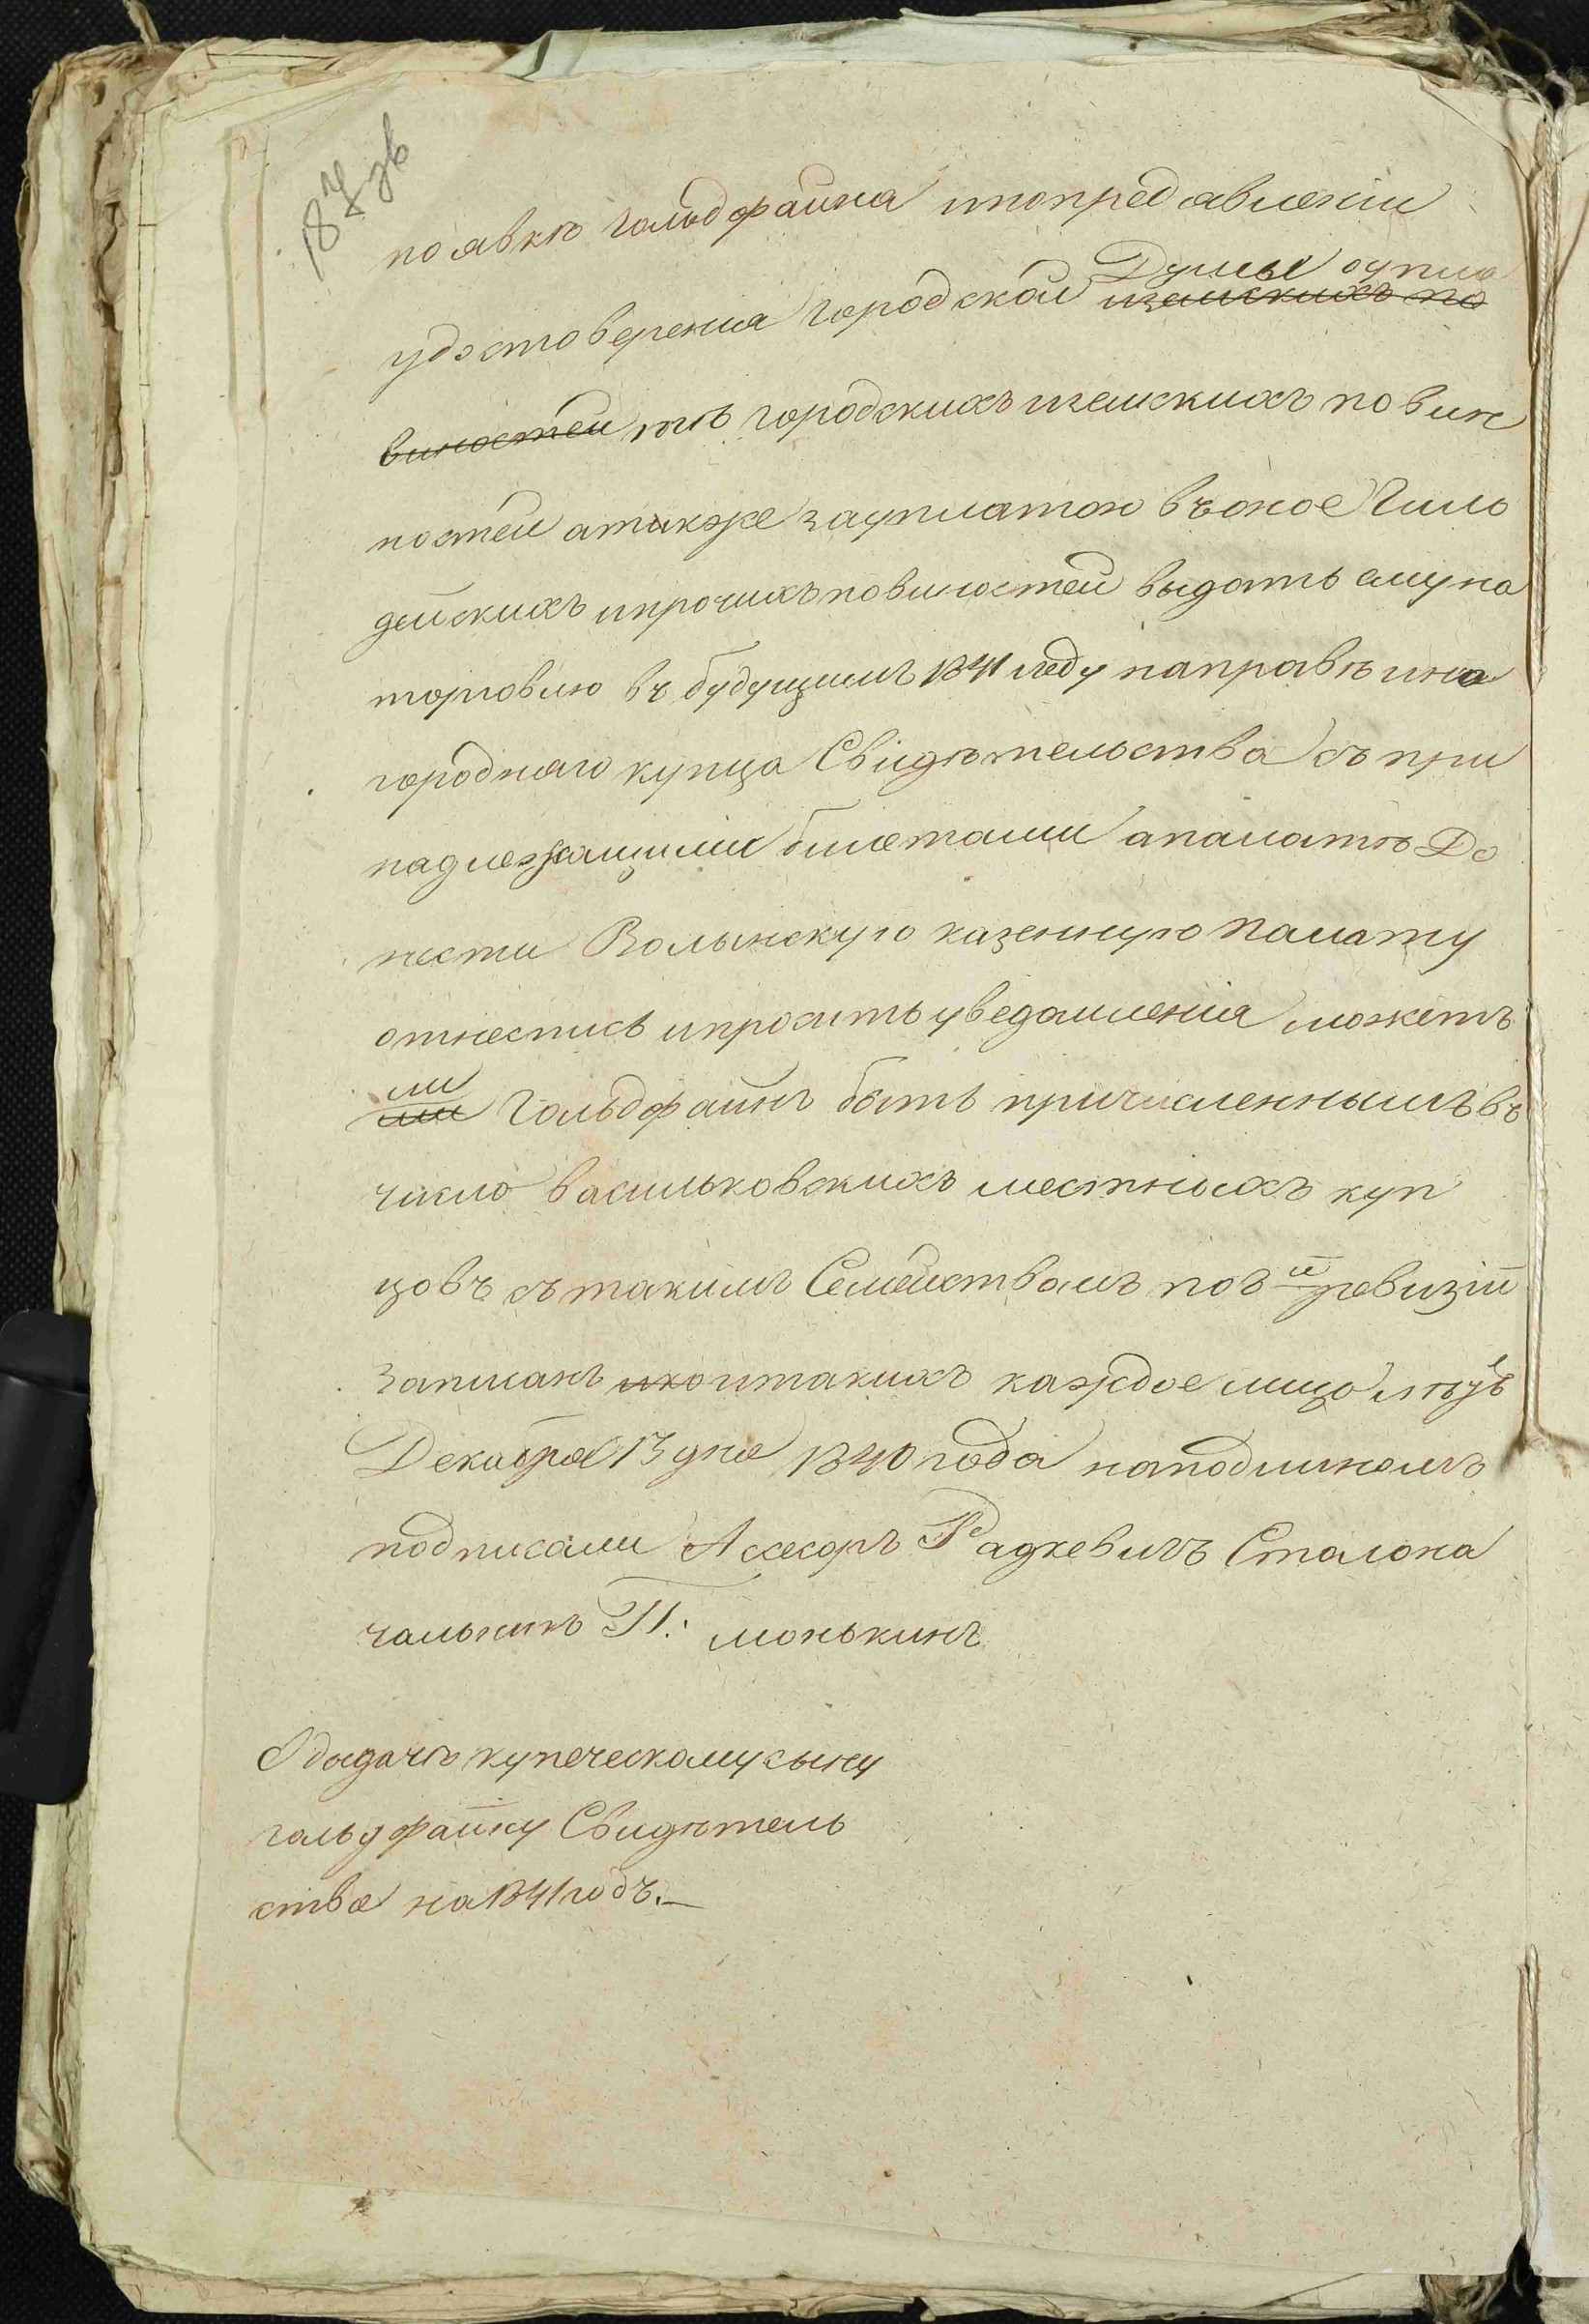 по явкѣ Гольдфайна и по пред явленіи
удостоверения Городской Думы о упла
иземскихъ по
виностей тѣ городскихъ и земскихъ повин
ностей а также за уплатою въ оное Гиль
дейскихъ и прочихъ повиностей выдать ему на
торговлю въ будущимъ 1841 году на правѣ ино
городнаго купца Свидѣтельства съ при
надлежащими билетами а палатѣ До
нести Волынскую казенную Палату
отнестись и просить уведомления можетъ
ли
Гольдфайнъ быть причисленнымъ въ
число васильковскихъ местныхъ куп
цовъ съ такимъ Семействомъ по 8 й ревизіи
записанъ и котакихъ каждое лицо лѣтъ
Декабря 13 дня 1840 года на подлиномъ
подписали Ассесоръ Радкевичъ Столона
чальникъ П: монькинъ
О выдачѣ купеческому сыну
гольдфайну Свидѣтель
ства на 1841 годъ.—